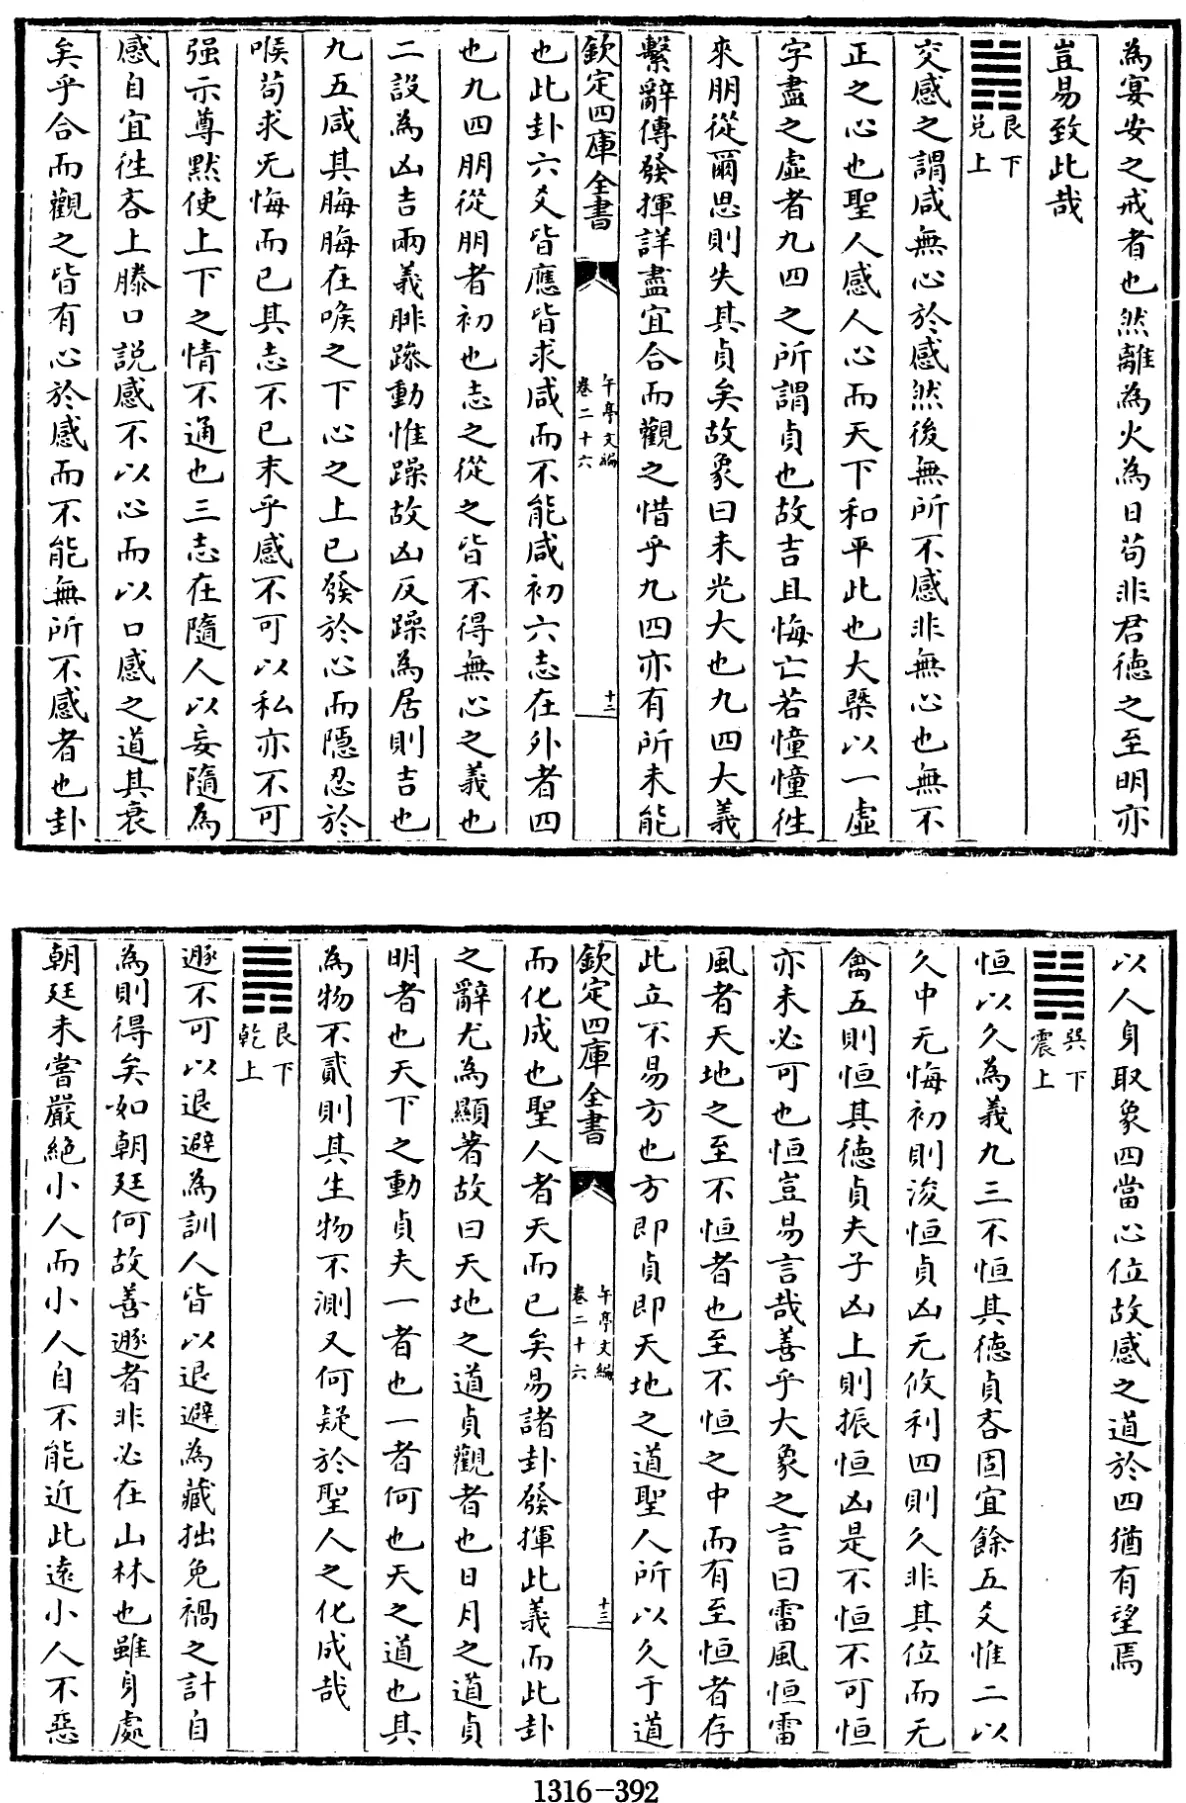 為宴安之戒者也然離為火為日苟非君德之至明亦
豈易致此哉
䷞艮下兌上
交感之謂咸無心於感然後無所不感非無心也無不
正之心也聖人感人心而天下和平此也大槩以一虛
字盡之虛者九四之所謂貞也故吉且悔亡若憧憧徃
來朋從爾思則失其貞矣故象曰未光大也九四大義
繫辭傳發揮詳盡宜合而觀之惜乎九四亦有所未能
欽定四庫全書
午亭文編
卷二十六
十二
也此卦六爻皆應皆求咸而不能咸初六志在外者四
也九四朋從朋者初也志之從之皆不得無心之義也
二設為凶吉兩義腓躁動惟躁故凶反躁為居則吉也
九五咸其脢脢在喉之下心之上已發於心而隱忍於
喉苟求无悔而已其志不已末乎感不可以私亦不可
强示尊默使上下之情不通也三志在隨人以妄隨為
感自宜徃吝上滕口說感不以心而以口感之道其衰
矣乎合而觀之皆有心於感而不能無所不感者也卦
以人身取象四當心位故感之道於四猶有望焉
䷟巽下震上
恒以久為義九三不恒其德貞吝固宜餘五爻惟二以
久中无悔初則浚恒貞凶无攸利四則久非其位而无
禽五則恒其德貞夫子凶上則振恒凶是不恒不可恒
亦未必可也恒豈易言哉善乎大象之言曰雷風恒雷
風者天地之至不恒者也至不恒之中而有至恒者存
此立不易方也方即貞即天地之道聖人所以久于道
欽定四庫全書
午亭文編
卷二十六
十三
而化成也聖人者天而已矣易諸卦發揮此義而此卦
之辭尤為顯著故曰天地之道貞觀者也日月之道貞
明者也天下之動貞夫一者也一者何也天之道也其
為物不貳則其生物不測又何疑於聖人之化成哉
䷠艮下乾上
遯不可以退避為訓人皆以退避為藏拙免禍之計自
為則得矣如朝廷何故善遯者非必在山林也雖身處
朝廷未嘗嚴絕小人而小人自不能近此遠小人不惡
1316-392